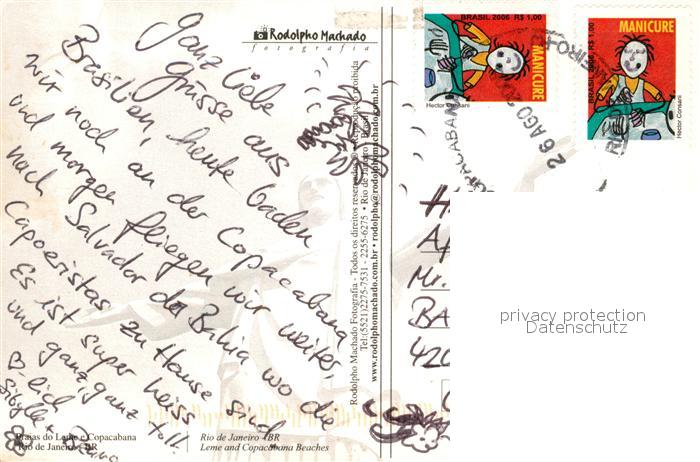 Rodolpho Machado
fotografia
Ganz liebe
Grüsse aus
Brasilien, heute baden
wir noch an der Copacabana
und morgen fliegen wir weiter,
nach Salvador da Bahia wo die
Capoeristas zu Hause sind
Es ist super heiss
und ganz ganz toll!
Sibylle +
Praias do Leme e Copacabana
Rio de Janeiro - BR
Rio de Janeiro - BR
Leme and Copacabana Beaches
Rodolpho Machado Fotografia - Todos os direitos reservados - Reprodução proibida
Tel:(5521)2275-7531 - 2255-6275 • Rio de Janeiro - Brasil
www.rodolphomachado.com.br • rodolpho@rodolphomachado.com.br
BRASIL 2006 R$ 1,00
MANICURE
Hector Consani
BRASIL 2006 R$ 1,00
MANICURE
Hector Consani
COPACABANA
26 AGO
Mr.
BA
420
privacy protection
Datenschutz